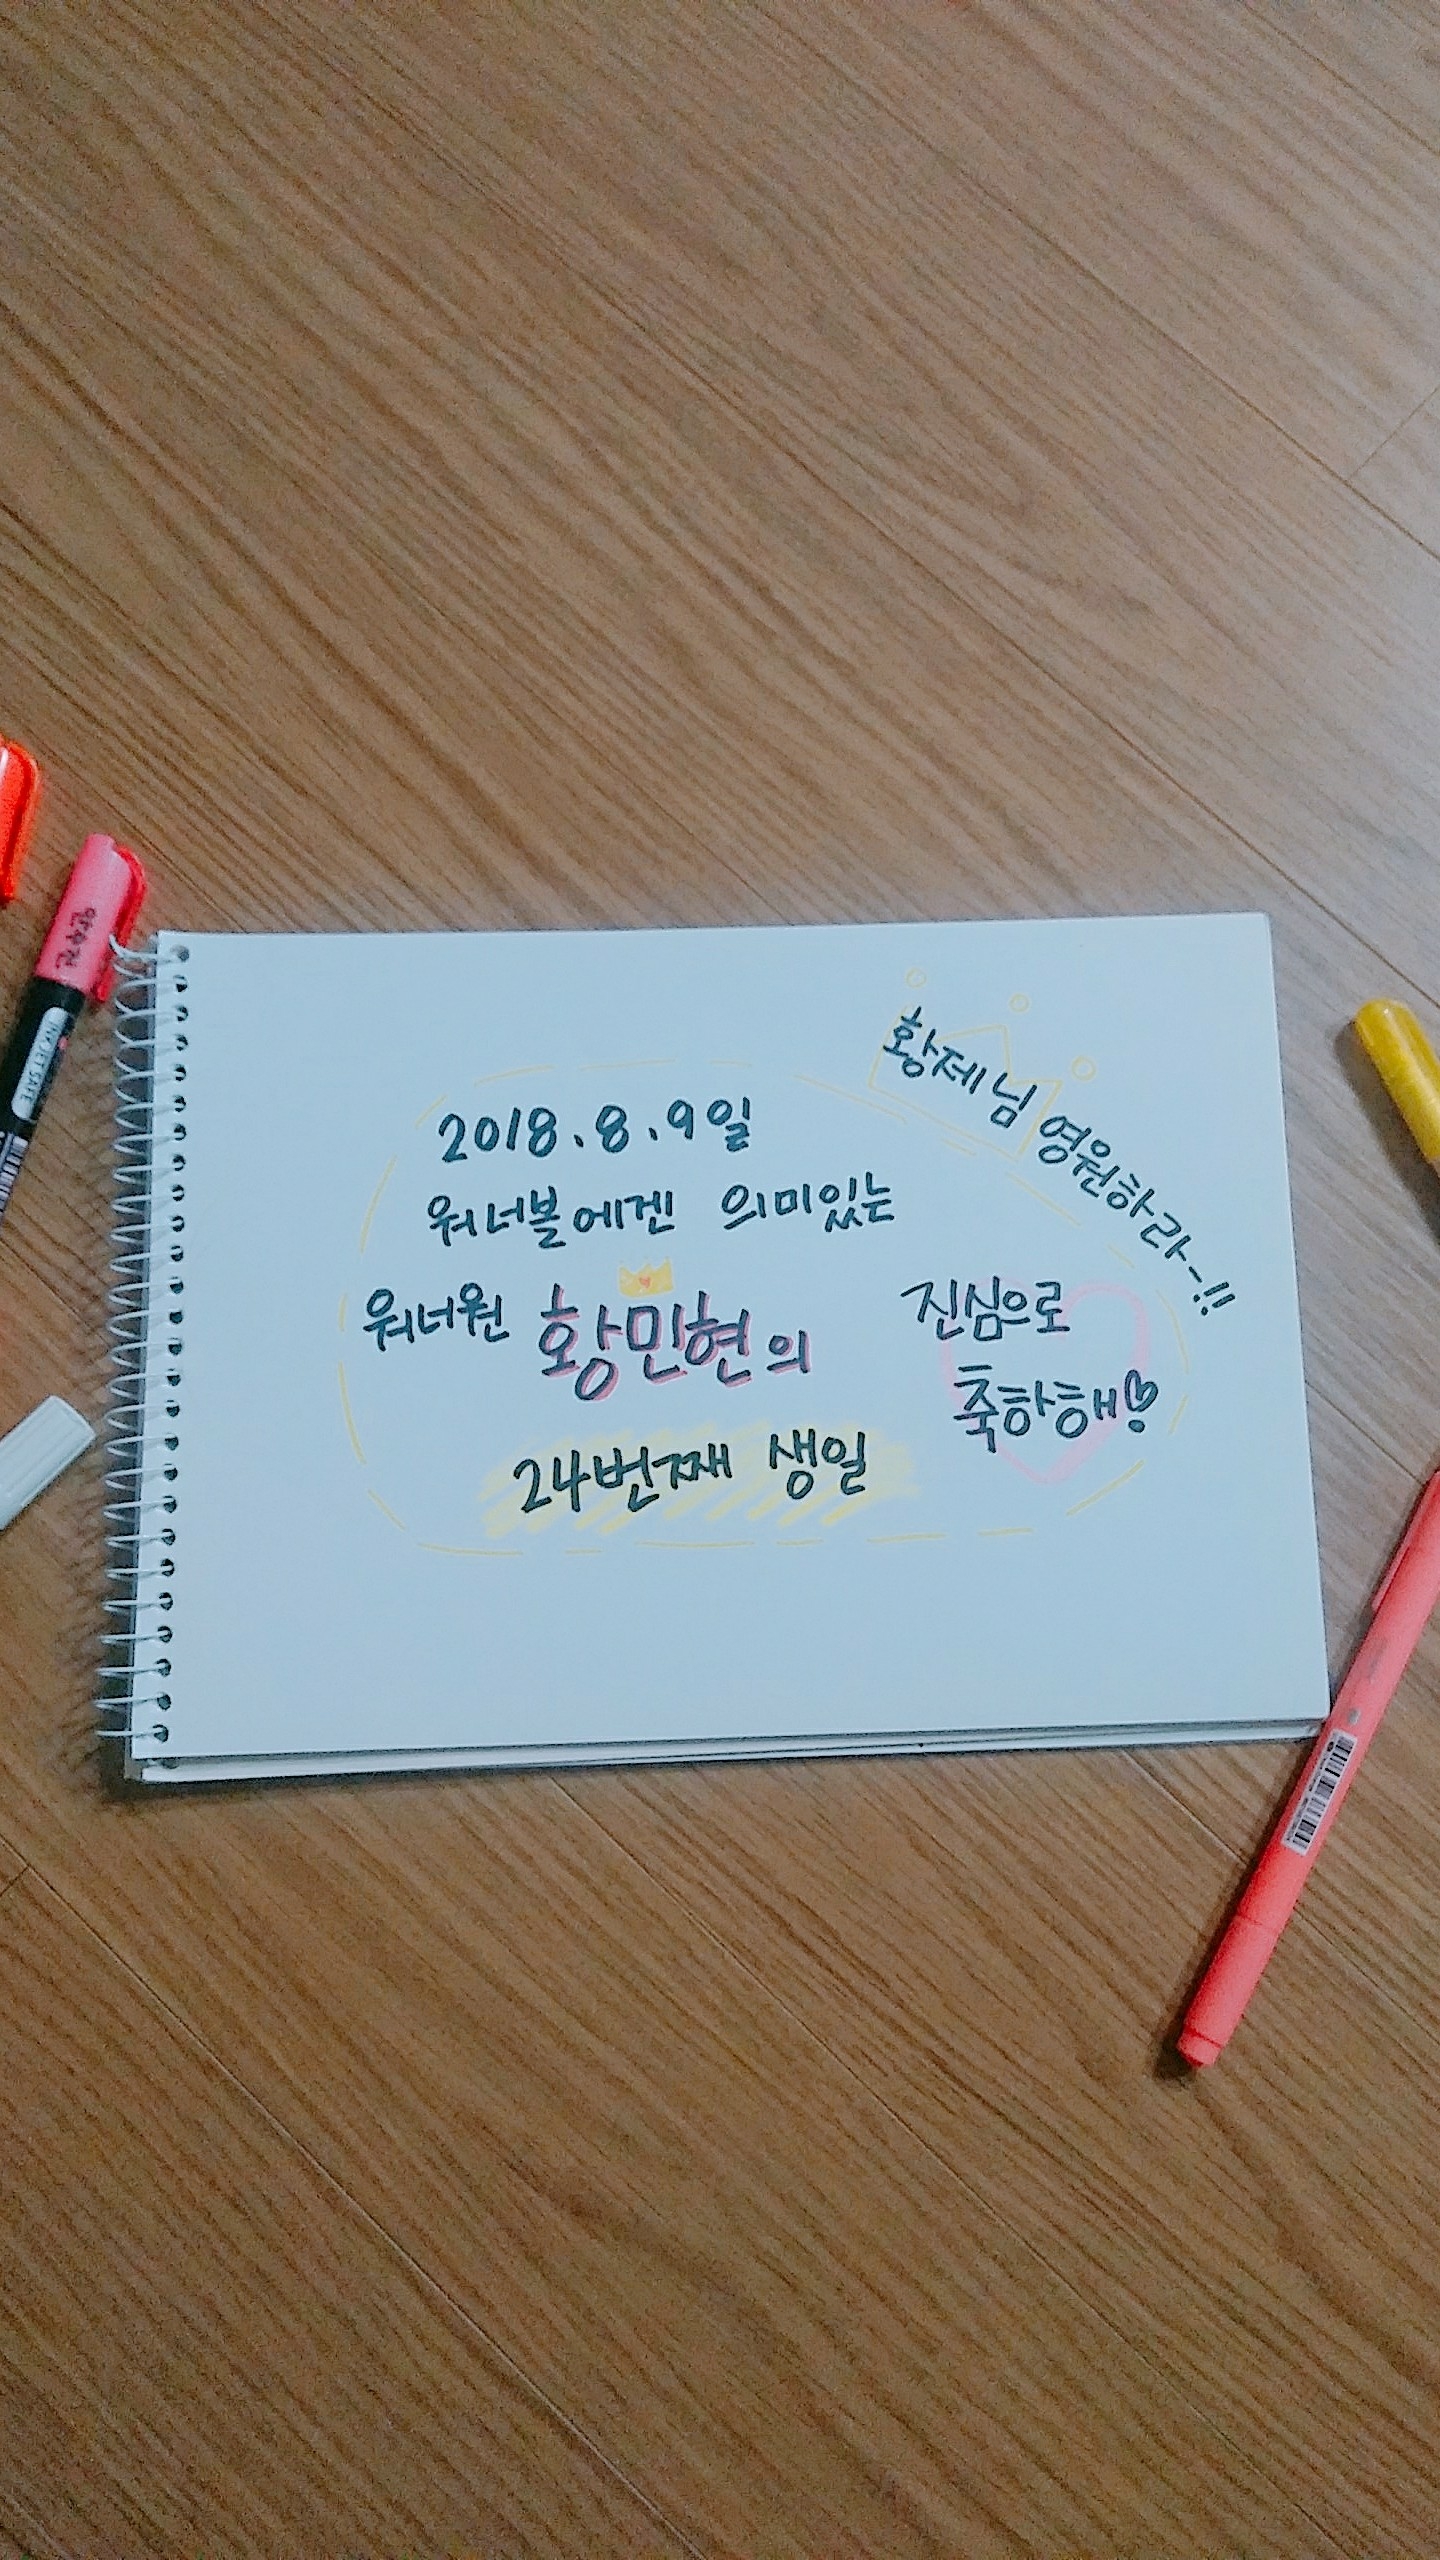 2018. 8. 9일
워너볼에겐 의미있는
워너원 황민현의
24번째 생일
진심으로
축하해♡
황제님 영원하라~!!
INKJET SAFE